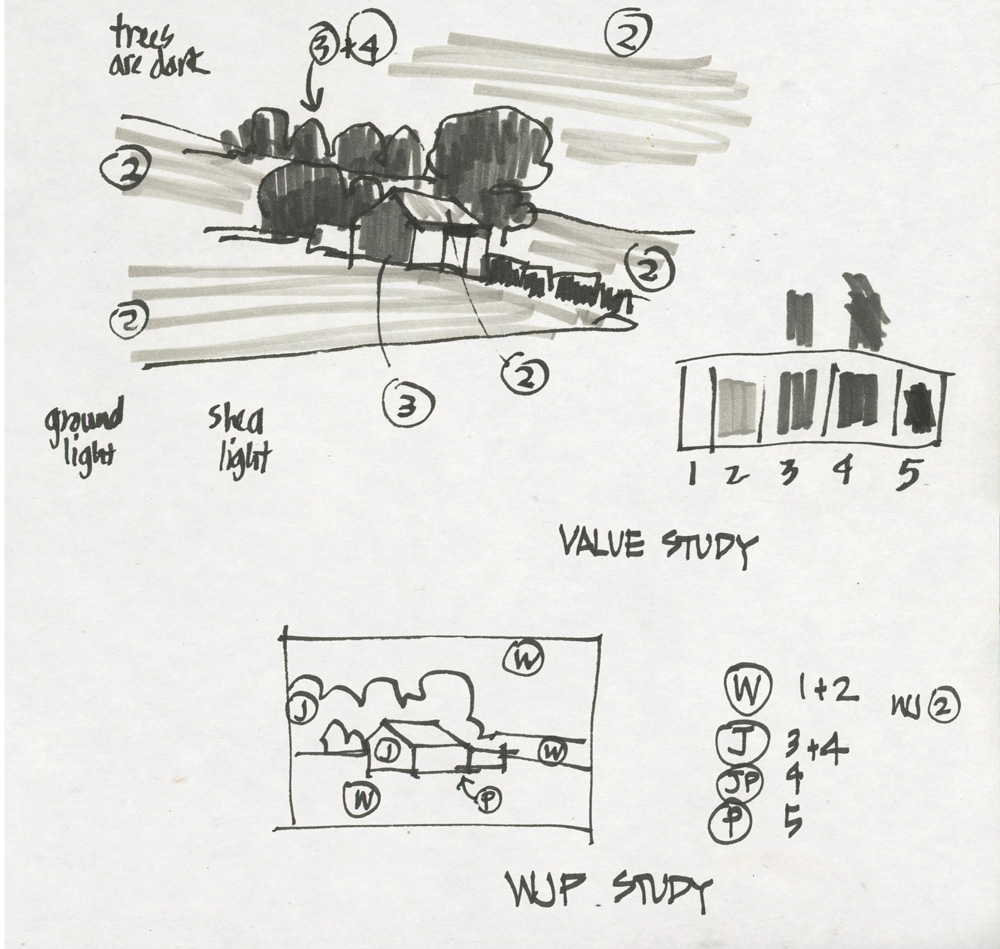 trees
are dark
3+4
2
2
2
2
3
2
ground
light
shed
light
1 2 3 4 5
VALUE STUDY
W
J
J
W
W
P
W 1+2
WJ 2
J 3+4
JP 4
P 5
WJP. STUDY